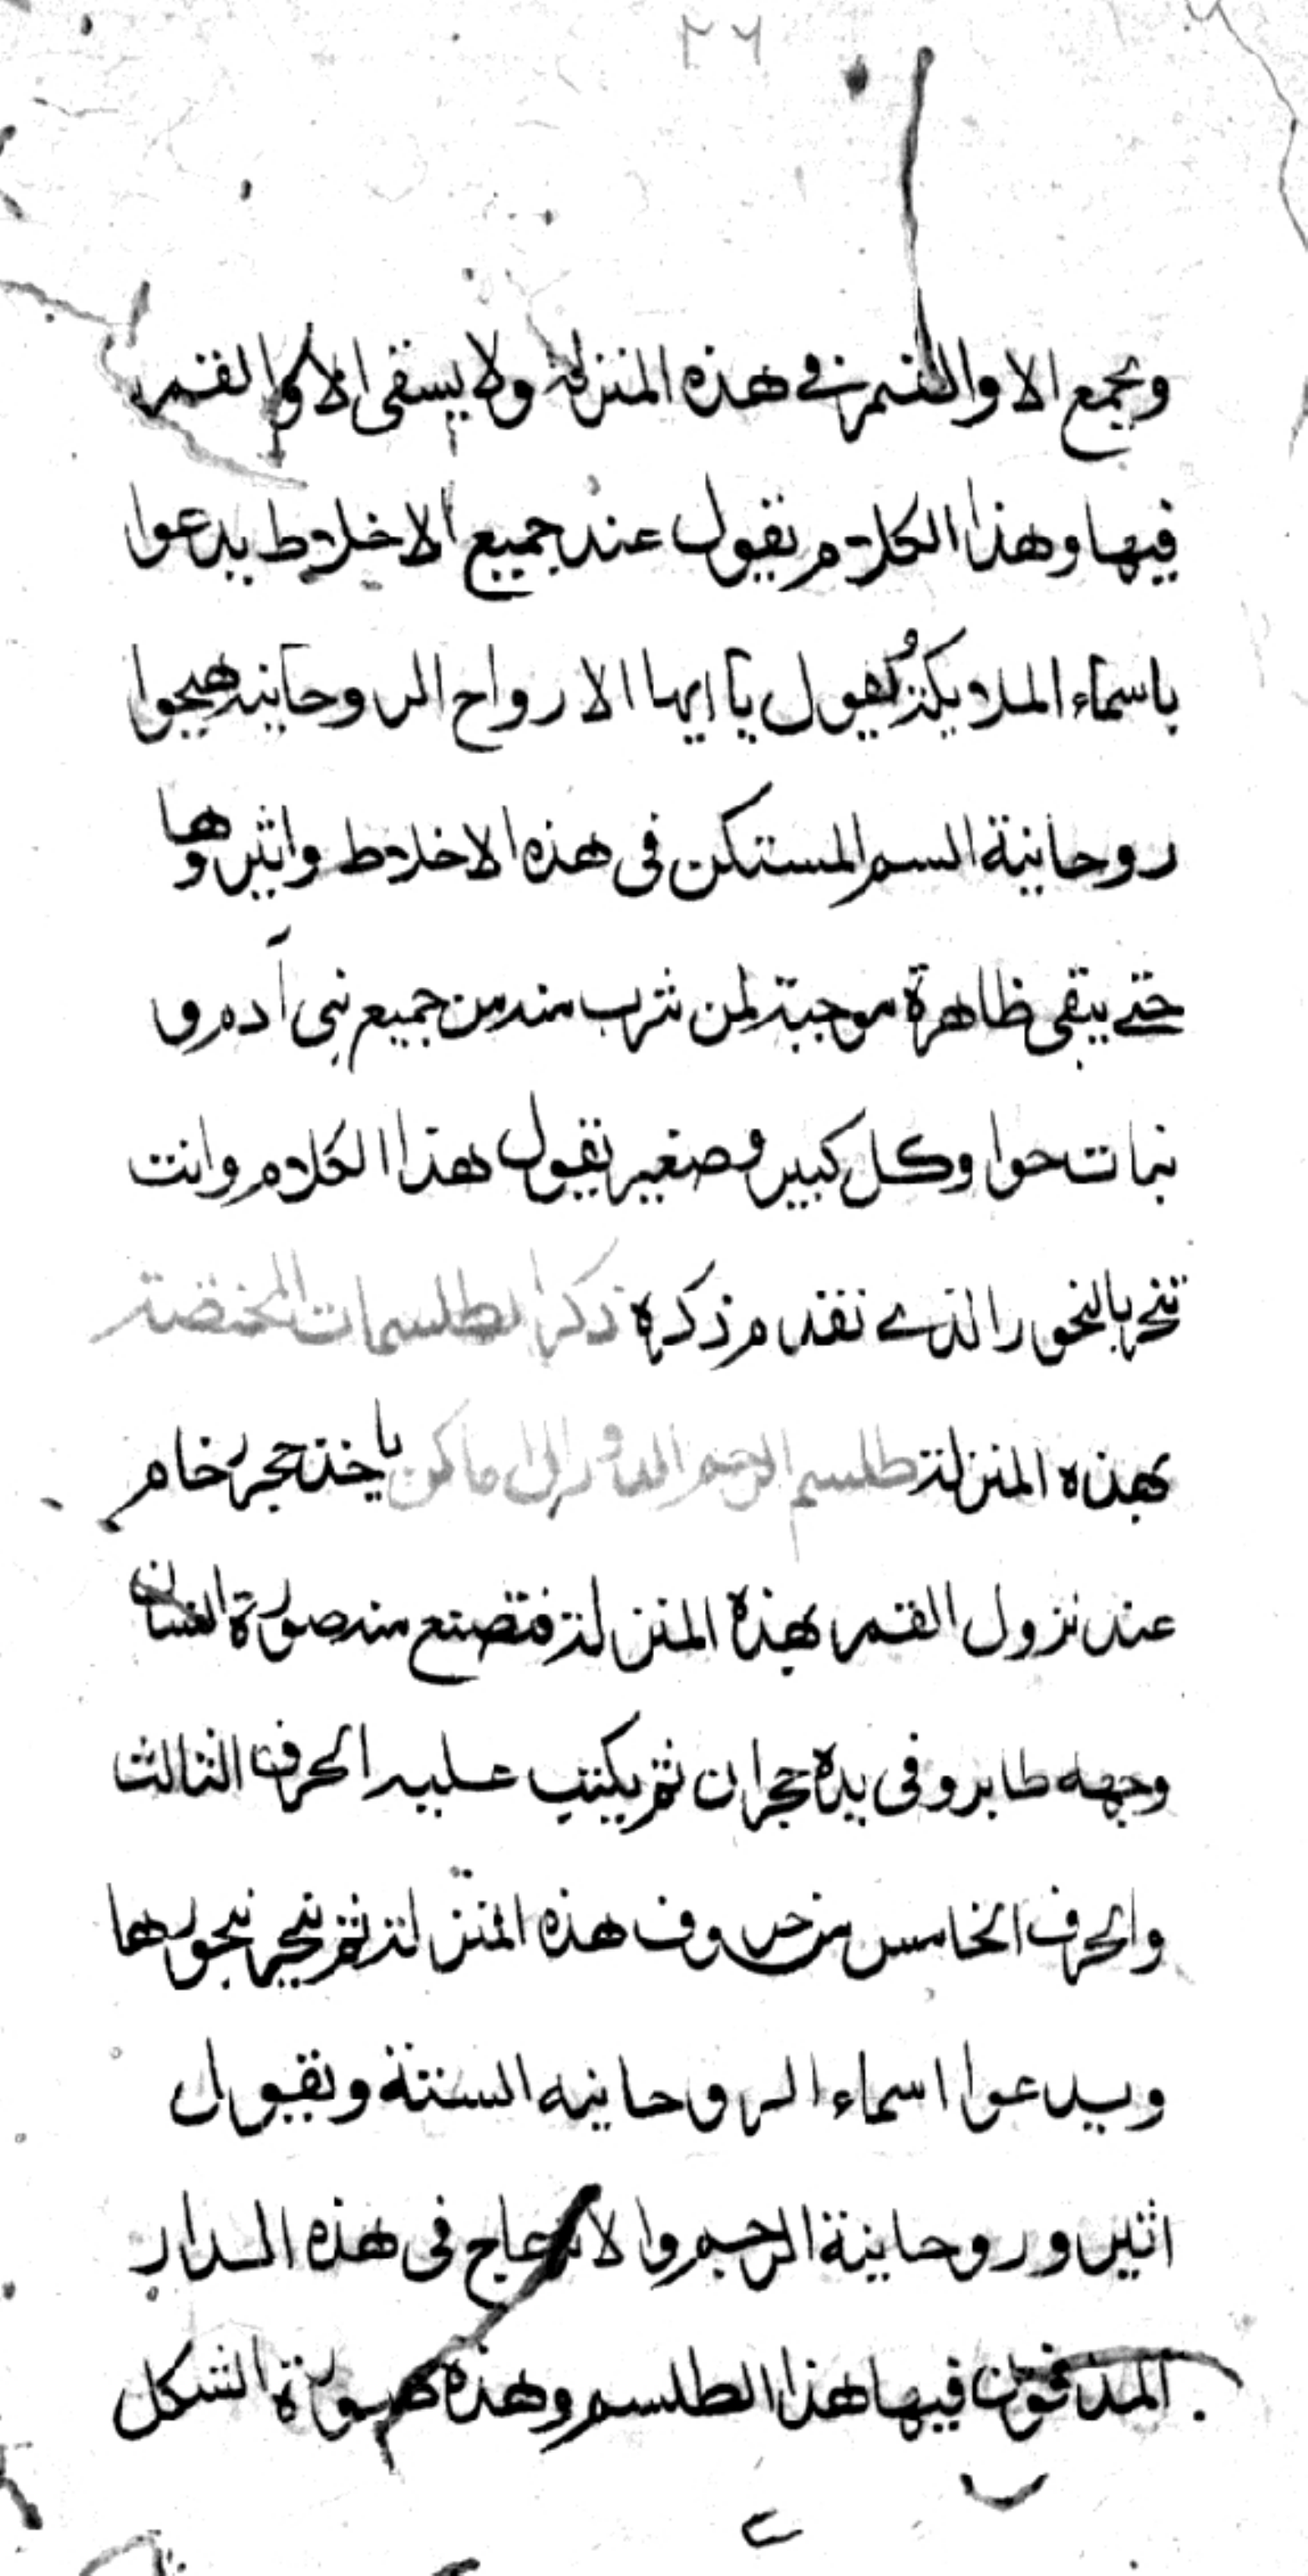 ٢٦
ويجمع الا والقمر في هذه المنزلة ولا يسقى الا والقمر
فيها وهذا الكلام يقول عند جميع الاخلاط يدعوا
باسماء الملايكة ويقول يا ايها الارواح الروحانيه هيجوا
روحانية السم المستكن في هذه الاخلاط واثيروها
حتى يبقى ظاهرة موجبة لمن شرب منه من جميع بنى آدم و
بنات حوا وكل كبير وصغير يقول هذا الكلام وانت
تبخر بالبخور الذى تقدم ذكره ذكر الطلسمات المختصة
بهذه المنزلة طلسم الرجم الدور الاماكن ياخذ حجر رخام
عند نزول القمر بهذه المنزلة فتصنع منه صورة انسان
وجهه طاير وفى يده حجران ثم يكتب عليه الحرف الثالث
والحرف الخامس من حروف هذه المنزلة ثم يبخر ببخورها
ويدعوا اسماء الروحانيه الستة ويقول
اثير وروحانية الرجم والانزعاج فى هذه الدار
المدفون فيها هذا الطلسم وهذه صورة الشكل